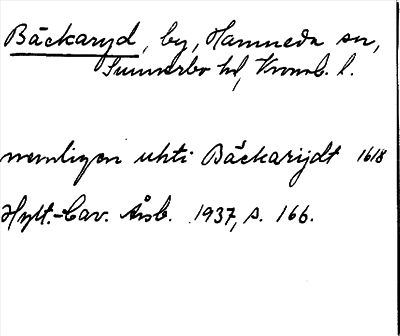 Bäckaryd, by, Hamneda sn,
Sunnerbo hd, Kronob. l.
nemligen uhti Bäckarijdt 1618
Hylt.-Cav. Årsb. 1937, s. 166.